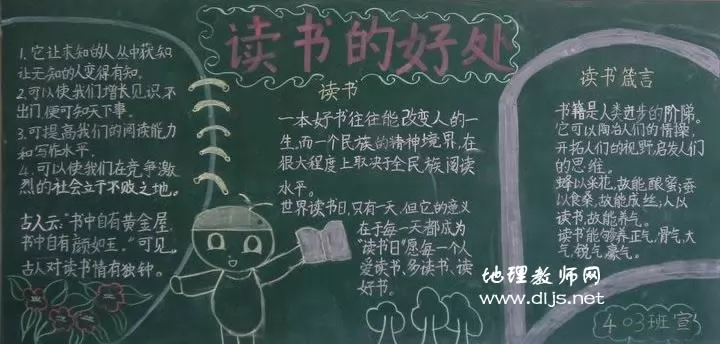 读书的好处
1.它让求知的人从中获知
让无知的人变得有知。
2.可以使我们增长见识不
出门,便可知天下事。
3.可提高我们的阅读能力
和写作水平。
4.可以使我们在竞争激
烈的社会立于不败之地。
古人云:“书中自有黄金屋,
书中自有颜如玉。”可见,
古人对读书情有独钟。
读书
一本好书往往能改变人的一
生,而一个民族的精神境界,在
很大程度上取决于全民族阅读
水平。
世界读书日,只有一天,但它的意义
在于每一天都成为
“读书日”愿每一个人
爱读书、多读书、读
好书。
读书箴言
书籍是人类进步的阶梯。
它可以陶冶人们的情操,
开拓人们的视野,启发人们
的思维。
蜂以采花,故能酿蜜;蚕
以食桑,故能成丝;人以
读书,故能养气。
读书能够养正气,骨气,大
气,锐气,豪气。
地理教师网
www.dljs.net
403班宣